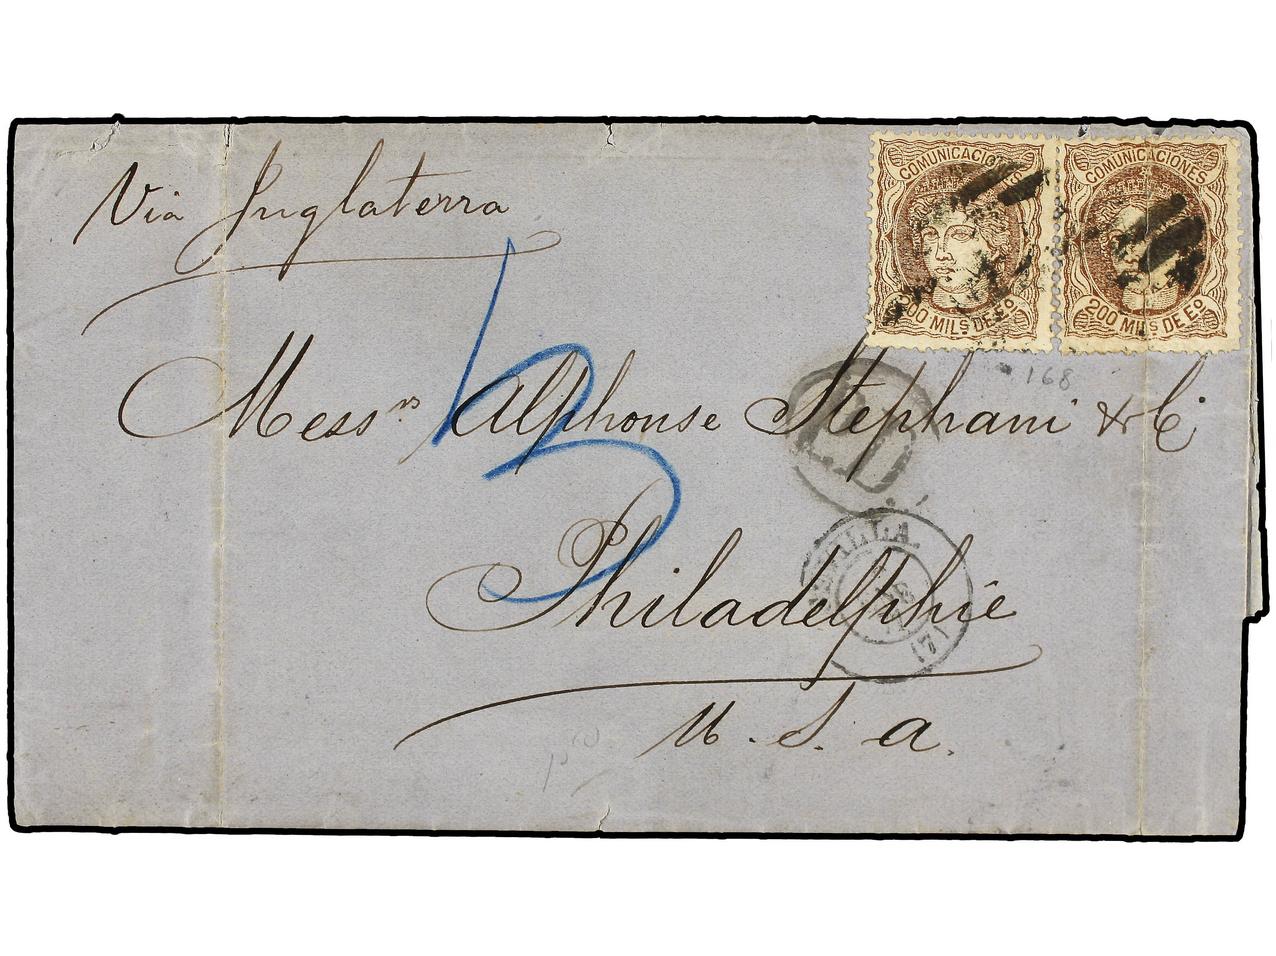 Via Inglaterra
COMUNICACIONES
200 MILS DE Eo
COMUNICACIONES
200 MILS DE Eo
168
Messrs Alphonse Stephani & Co
P.D.
SEVILLA
(7)
Philadelphie
U. S. a.